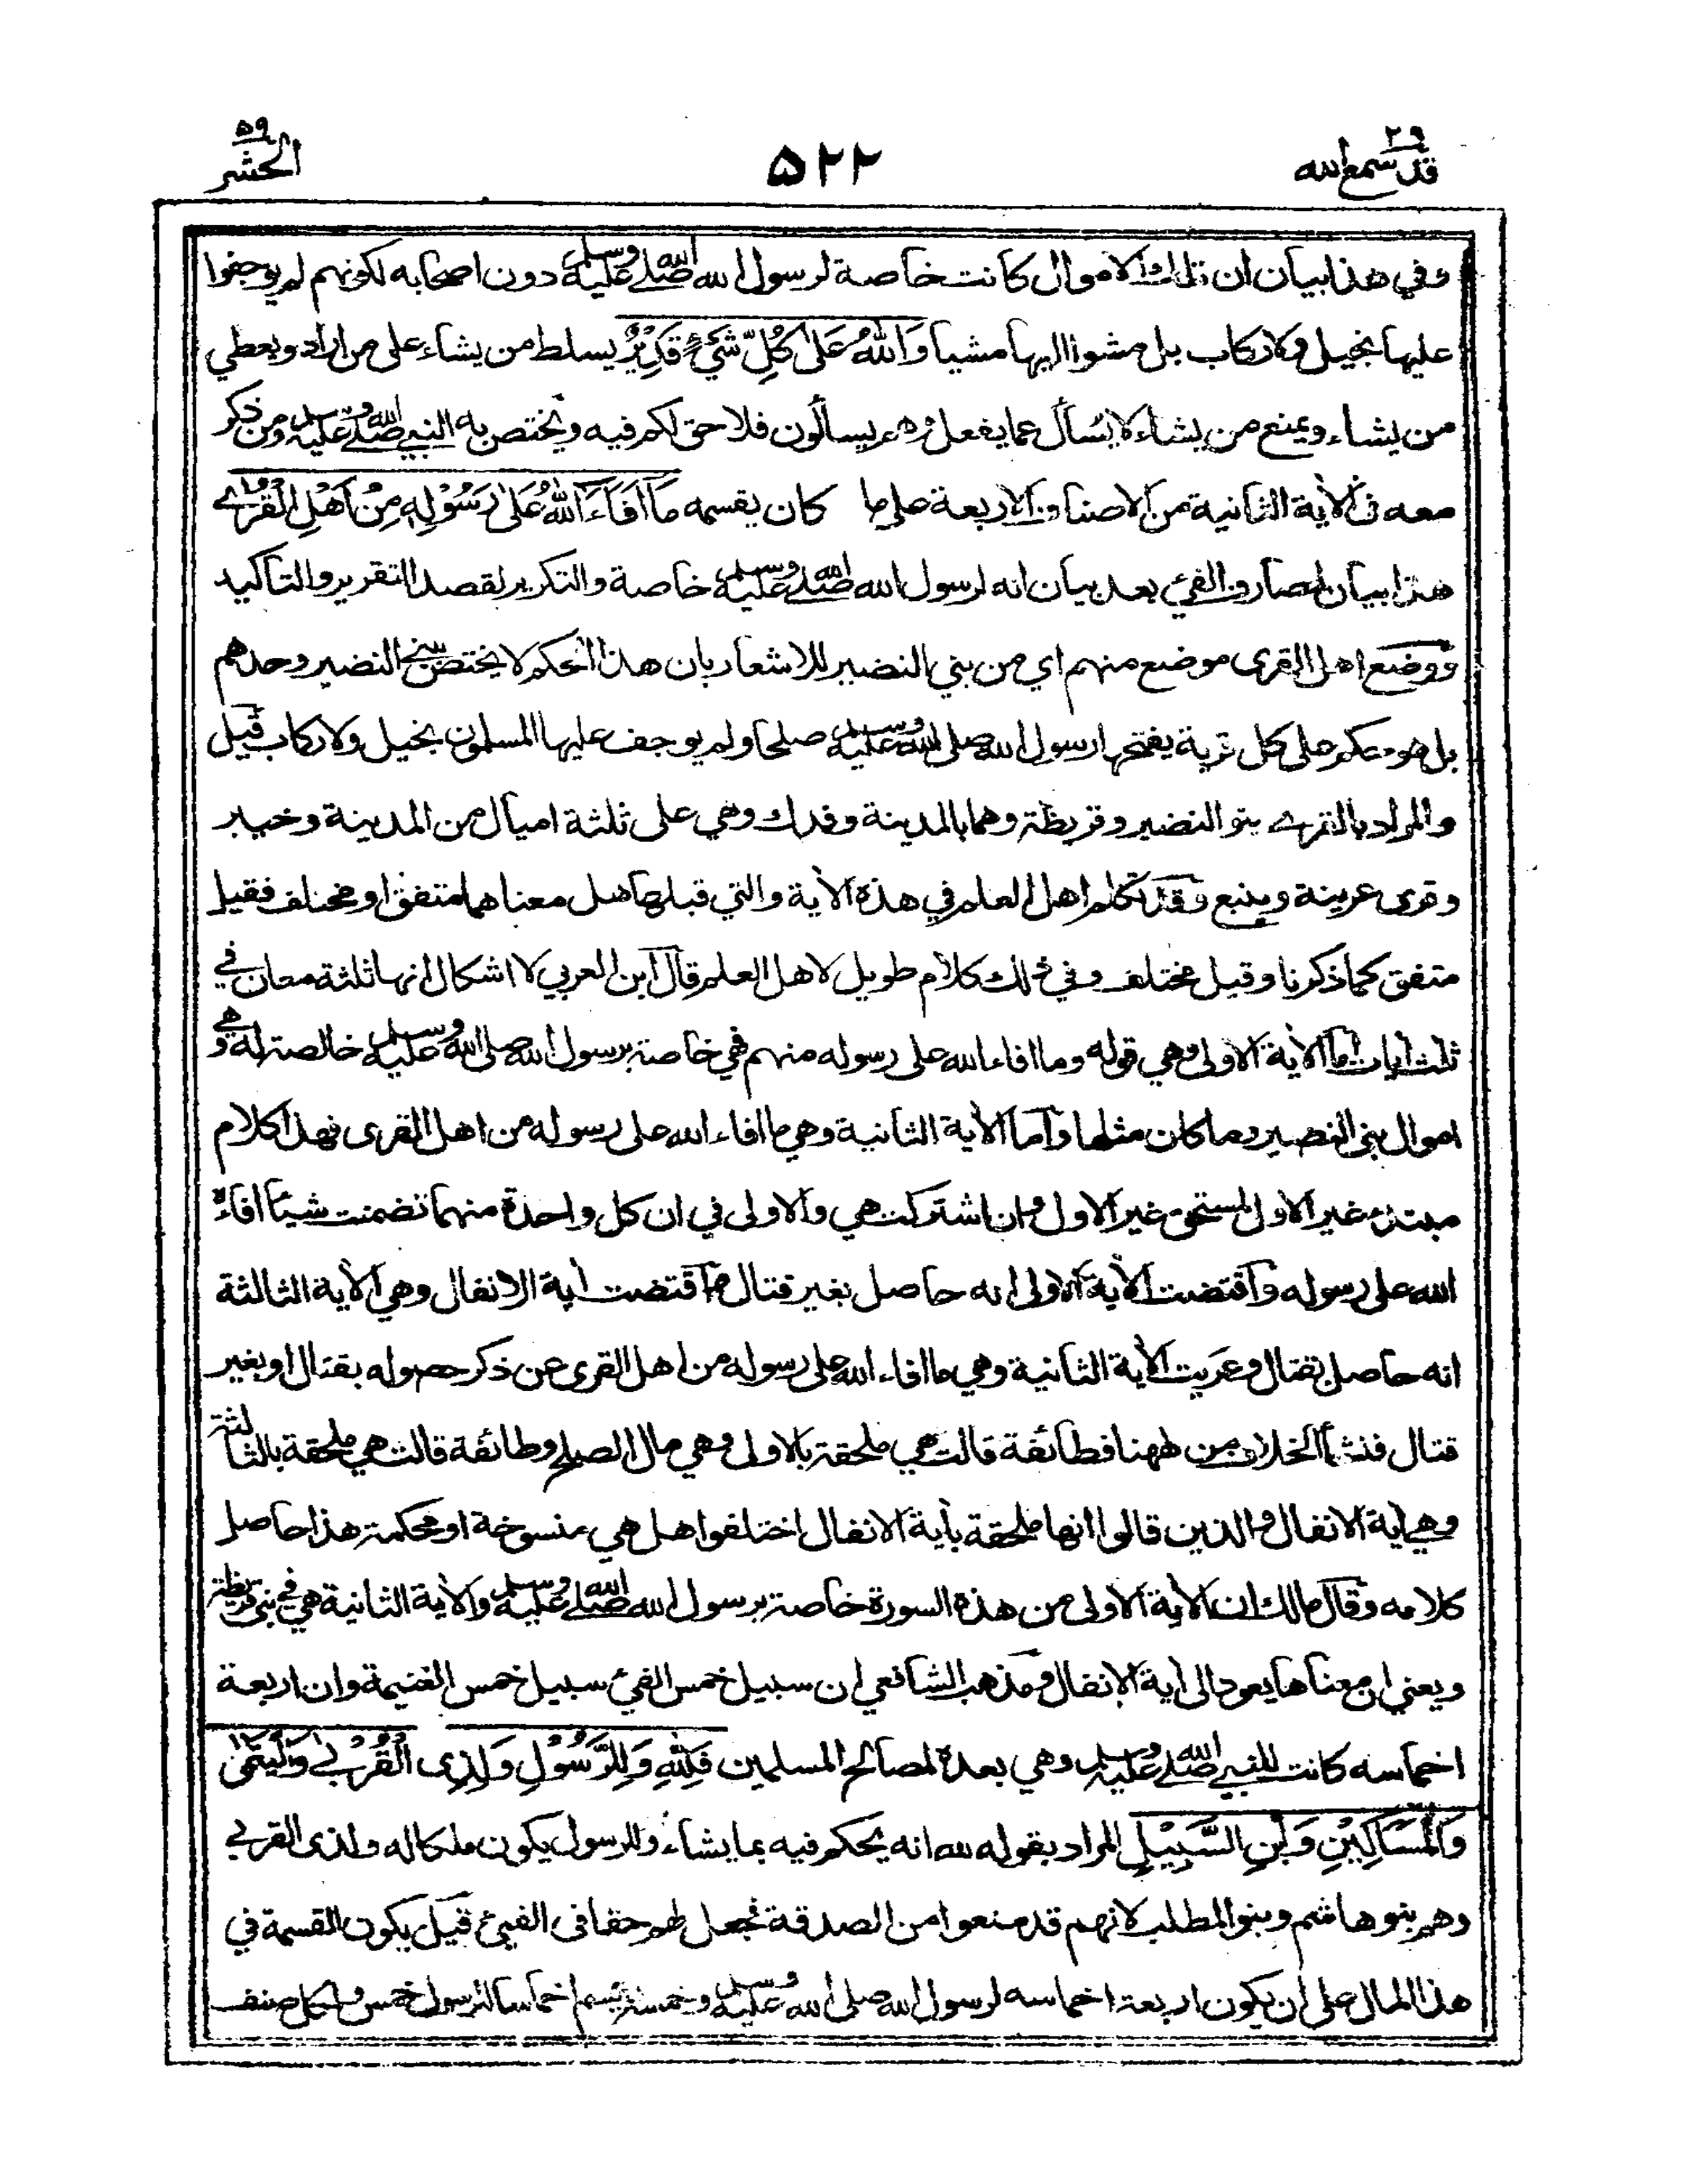 قد سمع الله ٢٩
٥٢٢
الحشر ٥٩
وفي هذا بيان ان تلك الاموال كانت خاصة لرسول الله صلى الله عليه وسلم دون اصحابه لكونهم لم يوجفوا
عليها بخيل ولا ركاب بل مشوا اليها مشيا وَاللّٰهُ عَلٰى كُلِّ شَيْءٍ قَدِيْرٌ يسلط من يشاء على من اراد ويعطي
من يشاء ويمنع من يشاء لا يسأل عما يفعل وهم يسألون فلا حق لكم فيه ويختص به النبي صلى الله عليه وسلم ومن ذكر
معه في الآية الثانية من الاصناف الاربعة على ما كان يقسمه مَآ اَفَآءَ اللّٰهُ عَلٰى رَسُوْلِهٖ مِنْ اَهْلِ الْقُرٰى
هذا بيان لمصارف الفئ بعد بيان انه لرسول الله صلى الله عليه وسلم خاصة والتكرير لقصد التقرير والتأكيد
ووضع اهل القرى موضع منهم اي من بني النضير للاشعار بان هذا الحكم لا يختص ببني النضير وحدهم
بل هو حكم على كل قرية يفتحها رسول الله صلى الله عليه وسلم صلحا ولم يوجف عليها المسلمون بخيل ولا ركاب قيل
والمراد بالقرى بنو النضير وقريظة وهما بالمدينة وفدك وهي على ثلثة اميال من المدينة وخيبر
وقرى عرينة وينبع وقد تكلم اهل العلم في هذه الآية والتي قبلها هل معناهما متفق او مختلف فقيل
متفق كما ذكرنا وقيل مختلف وفي ذلك كلام طويل لاهل العلم قال ابن العربي لا اشكال انها ثلثة معان في
ثلث ايات اما الآية الاولى وهي قوله وما افاء الله على رسوله منهم فهي خاصة برسول الله صلى الله عليه وسلم خالصة له وهي
اموال بني النضير وما كان مثلها واما الآية الثانية وهي ما افاء الله على رسوله من اهل القرى فهذا كلام
مبتدء غير الاول لمستحق غير الاول وان اشتركت هي والاولى في ان كل واحدة منهما تضمنت شيئا افاءه
الله على رسوله واقتضت الآية الاولى انه حاصل بغير قتال واقتضت آية الانفال وهي الآية الثالثة
انه حاصل بقتال وعريت الآية الثانية وهي ما افاء الله على رسوله من اهل القرى عن ذكر حصوله بقتال او بغير
قتال فنشأ الخلاف من ههنا فطائفة قالت هي ملحقة بالاولى وهي مال الصلح وطائفة قالت هي ملحقة بالثالثة
وهي آية الانفال والذين قالوا انها ملحقة بآية الانفال اختلفوا هل هي منسوخة او محكمة هذا حاصل
كلامه وقال مالك ان الآية الاولى من هذه السورة خاصة برسول الله صلى الله عليه وسلم والآية الثانية هي في بني قريظة
ويعني ان معناها يعود الى آية الانفال ومذهب الشافعي ان سبيل خمس الفئ سبيل خمس الغنيمة وان اربعة
اخماسه كانت للنبي صلى الله عليه وسلم وهي بعده لمصالح المسلمين فَلِلّٰهِ وَلِلرَّسُوْلِ وَلِذِى الْقُرْبٰى وَالْيَتٰمٰى
وَالْمَسٰكِيْنِ وَابْنِ السَّبِيْلِ المراد بقوله لله انه يحكم فيه بما يشاء وللرسول يكون ملكا له ولذى القربى
وهم بنو هاشم وبنو المطلب لانهم قد منعوا من الصدقة فجعل لهم حقا في الفيئ قيل يكون القسمة في
هذا المال على ان يكون اربعة اخماسه لرسول الله صلى الله عليه وسلم وخمسه يقسم اخماسا للرسول خمس ولكل صنف